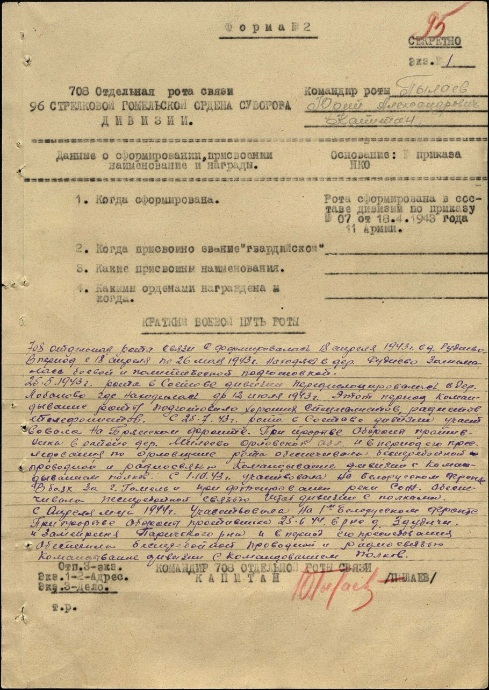 Форма №2
95
СЕКРЕТНО
Экз.№ 1
708 Отдельная рота связи
96 СТРЕЛКОВОЙ ГОМЕЛЬСКОЙ ОРДЕНА СУВОРОВА
ДИВИЗИИ.
Командир роты Пылаев
Юрий Александрович
Капитан
Данные о сформировании, присвоении
наименование и награды.
Основание: № приказа
НКО
1. Когда сформирована.
Рота сформирована в сос-
таве дивизии по приказу
№ 07 от 18.4.1943 года
11 Армии.
2. Когда присвоино звание "гвардийской"
3. Какие присвоины наименования.
4. Какими орденами награждена и
когда.
КРАТКИЙ БОЕВОЙ ПУТЬ РОТЫ
708 отдельная рота связи сформировалась 18 апреля 1943г в д. Руднево.
В период с 18 апреля по 26 мая 1943г. находясь в дер. Руднево занима-
лась боевой и политической подготовкой.
26.5.1943г. рота в составе дивизии передислоцировалась в дер.
где находилась до 12 июля 1943г. Этот период коман-
дывание роты подготовило хороших специалистов, радистов
и телефонистов. С 7.43г. рота в составе дивизии участ-
вовала на Брянском фронте. При прорыве обороны против-
ника в районе дер. Орловской обл. и в период его прес-
ледования по орловщине рота обеспечивала бесперебойной
проводной и радиосвязью командывание дивизии с коман-
дыванием полков. С 43г. участвовала на Белорусском фронте
В боях за г. Гомель и при форсировании реки Сож. Обеспе-
чивала связью штаб дивизии с полками.
С апреля м-ца 1944г. участвовала на 1м Белорусском фронте
При прорыве обороны противника 25.6.44 в р-не д.
и Паричского р-на и в период его преследования
обеспечила бесперебойной проводной и радиосвязью
командывание дивизии с командыванием полков.
Отп.3-экз.
Экз.1-2-Адрес.
Экз.3-дело.
т.р.
КОМАНДИР 708 ОТДЕЛЬНОЙ РОТЫ СВЯЗИ
КАПИТАН Пылаев /ПЫЛАЕВ/